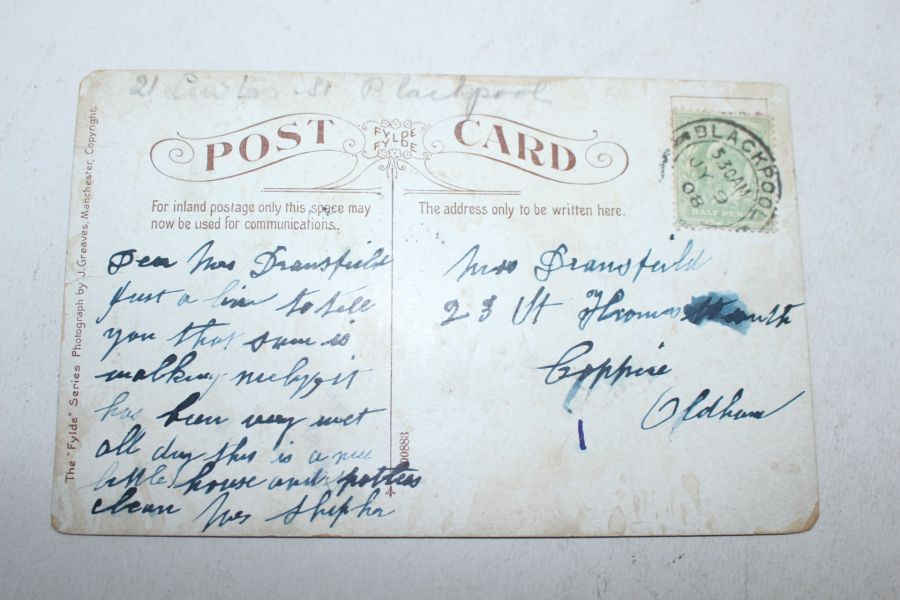 21 Lewtas St Blackpool
POST CARD
FYLDE
FYLDE
For inland postage only this space may
now be used for communications.
The address only to be written here.
BLACKPOOL
5 30AM
JY 9
08
HALF PENNY
Dear Mrs Dransfield
Just a line to tell
you that Sam is
walking nicly it
has been very wet
all day this is a nice
little house and spottles
clean Mrs
Mrs Dransfeild
23 St Thomas
Coppice
Oldham
The "Fylde" Series Photograph by J. Greaves, Manchester, Copyright.